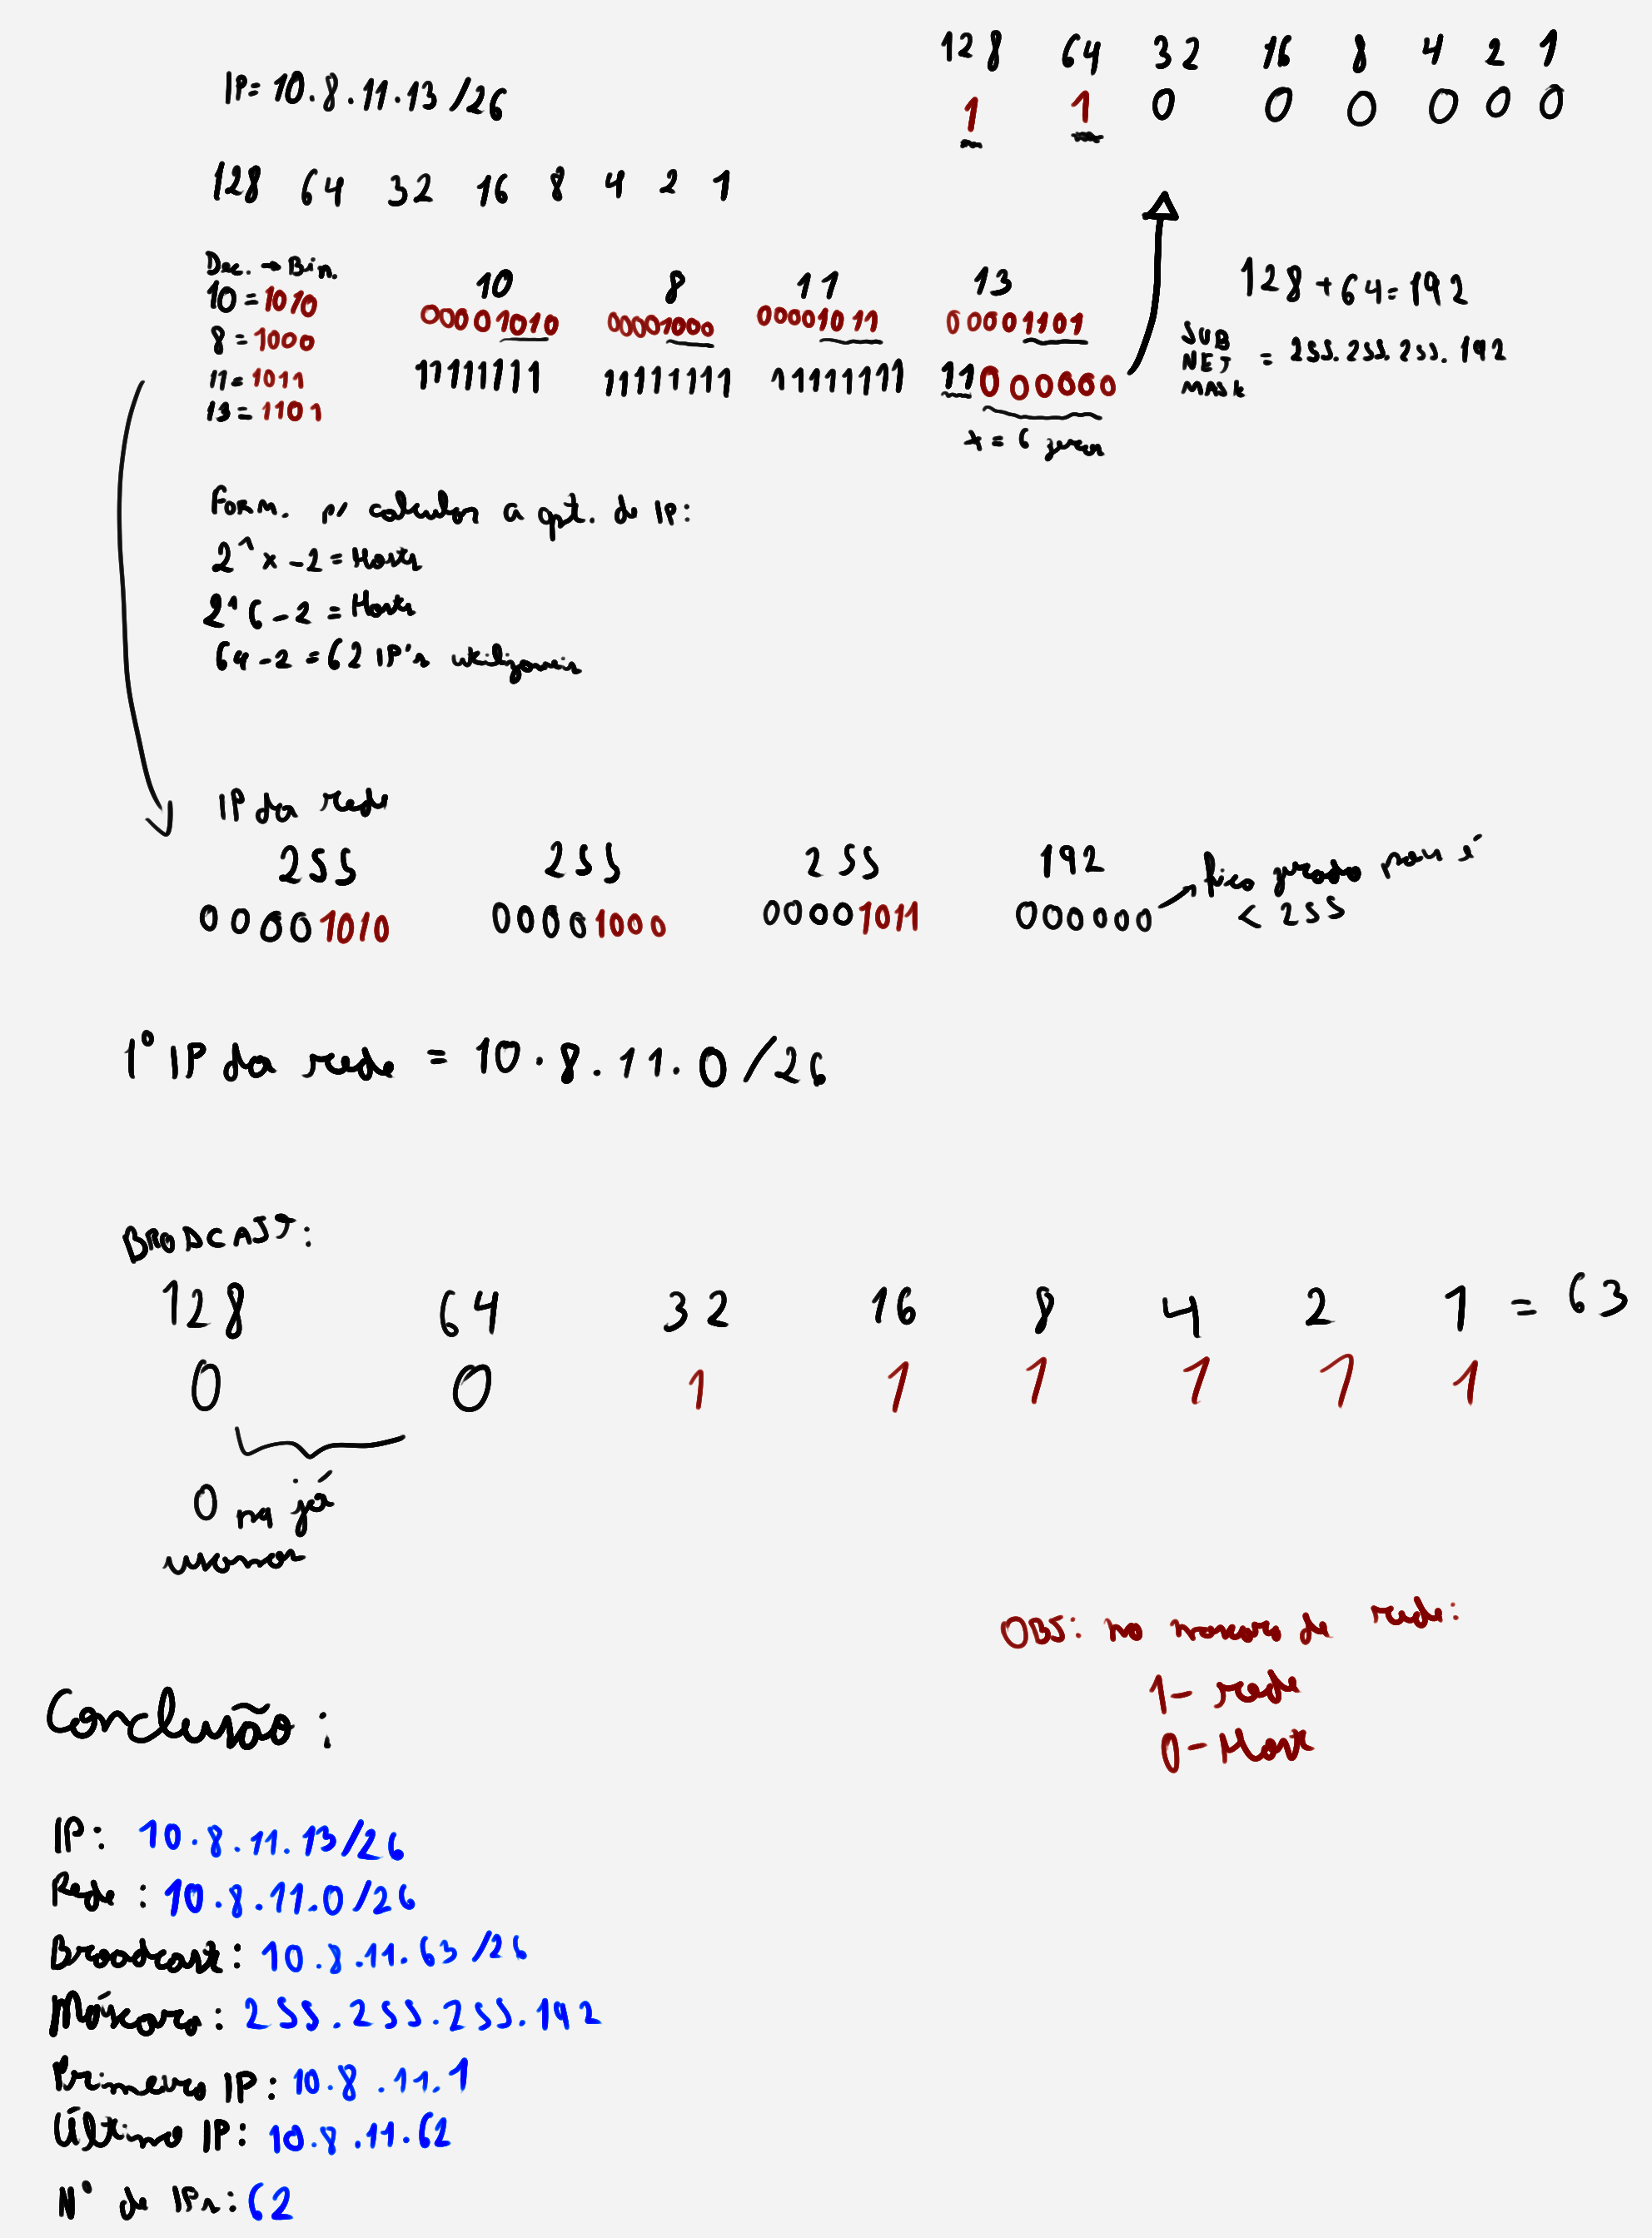 128 64 32 16 8 4 2 1
1 1 0 0 0 0 0 0
IP= 10.8.11.13 /26
128 64 32 16 8 4 2 1
Dec. → Bin.
10 = 1010
8 = 1000
11 = 1011
13 = 1101
10 8 11 13
00001010 00001000 00001011 00001101
11111111 11111111 11111111 11000000
x = 6 zeros
128 + 64 = 192
SUB
NET = 255.255.255.192
MASK
Form. p/ calcular a qt. de IP:
2^x - 2 = Hosts
2^6 - 2 = Hosts
64 - 2 = 62 IP's utilizaveis
IP da rede
255 255 255 192
00001010 00001000 00001011 000000 → fica zerado pois é
< 255
1° IP da rede = 10.8.11.0/26
BRODCAST:
128 64 32 16 8 4 2 1 = 63
0 0 1 1 1 1 1 1
0 já
usamos
OBS: na mascara de rede:
1 - rede
0 - Host
Conclusão:
IP: 10.8.11.13/26
Rede: 10.8.11.0/26
Broadcast: 10.8.11.63/26
Máscara: 255.255.255.192
Primeiro IP: 10.8.11.1
Último IP: 10.8.11.62
N° de IPs: 62